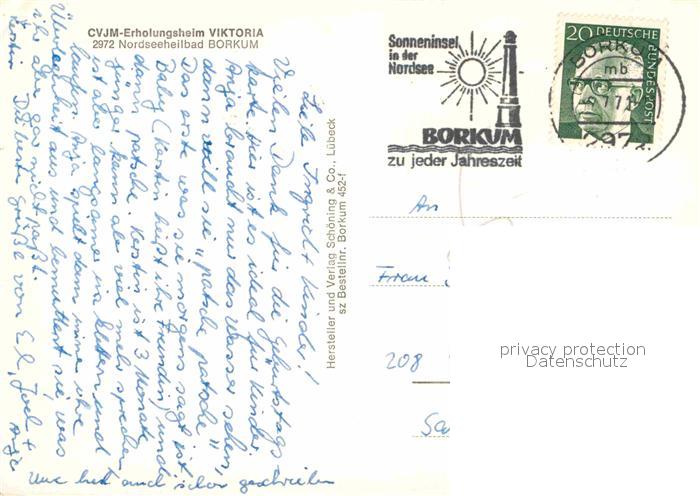 CVJM-Erholungsheim VIKTORIA
2972 Nordseeheilbad BORKUM
Liebe Ingrid + Kinder!
Vielen Dank für die Geburtstags
karte. Hier ist es ideal für Kinder.
Anja braucht nur das Wasser sehen,
dann will sie "patsche patsche".
Das erste was sie morgens sagt ist
Baby (Kerstin heißt ihre Freundin) und
dann patsche. Kerstin ist 3 Monate
jünger kann aber viel mehr sprechen
ist aber langsamer im klettern und
laufen. Anja spielt dann immer ihre
Überlegenheit aus und bemuttert sie, was
ihr aber gar nicht paßt.
Kerstin
Die besten Grüße von E.l, Joel +
Anja
Uwe hat auch schon geschrieben
Hersteller und Verlag Schöning & Co., Lübeck
sz Bestellnr. Borkum 452-f
Sonneninsel
in der
Nordsee
BORKUM
zu jeder Jahreszeit
20 DEUTSCHE
BUNDESPOST
BORKUM
mb
2972
An
Frau
208
privacy protection
Datenschutz